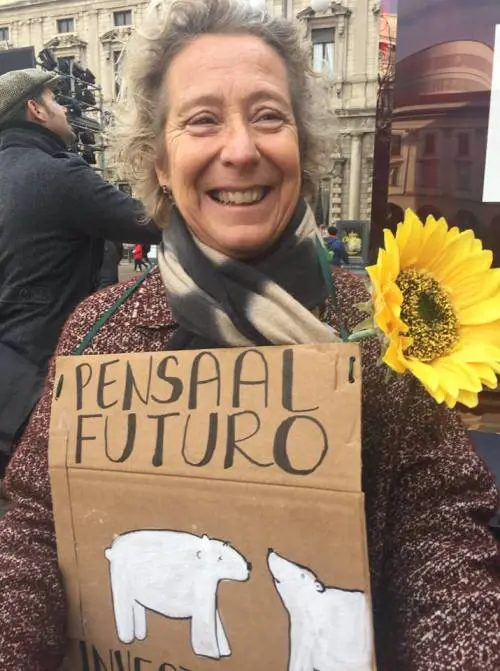 PENSA AL
FUTURO